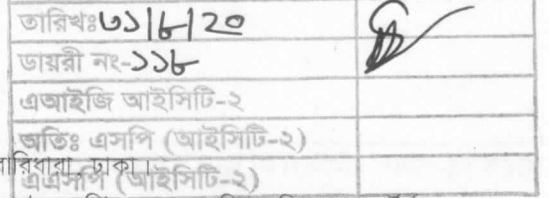 তারিখঃ৩১/৮/২০
ডায়রী নং-১১৮
এআইজি আইসিটি-২
অতিঃ এসপি (আইসিটি-২)
বারিধারা, ঢাকা।
এএসপি (আইসিটি-২)